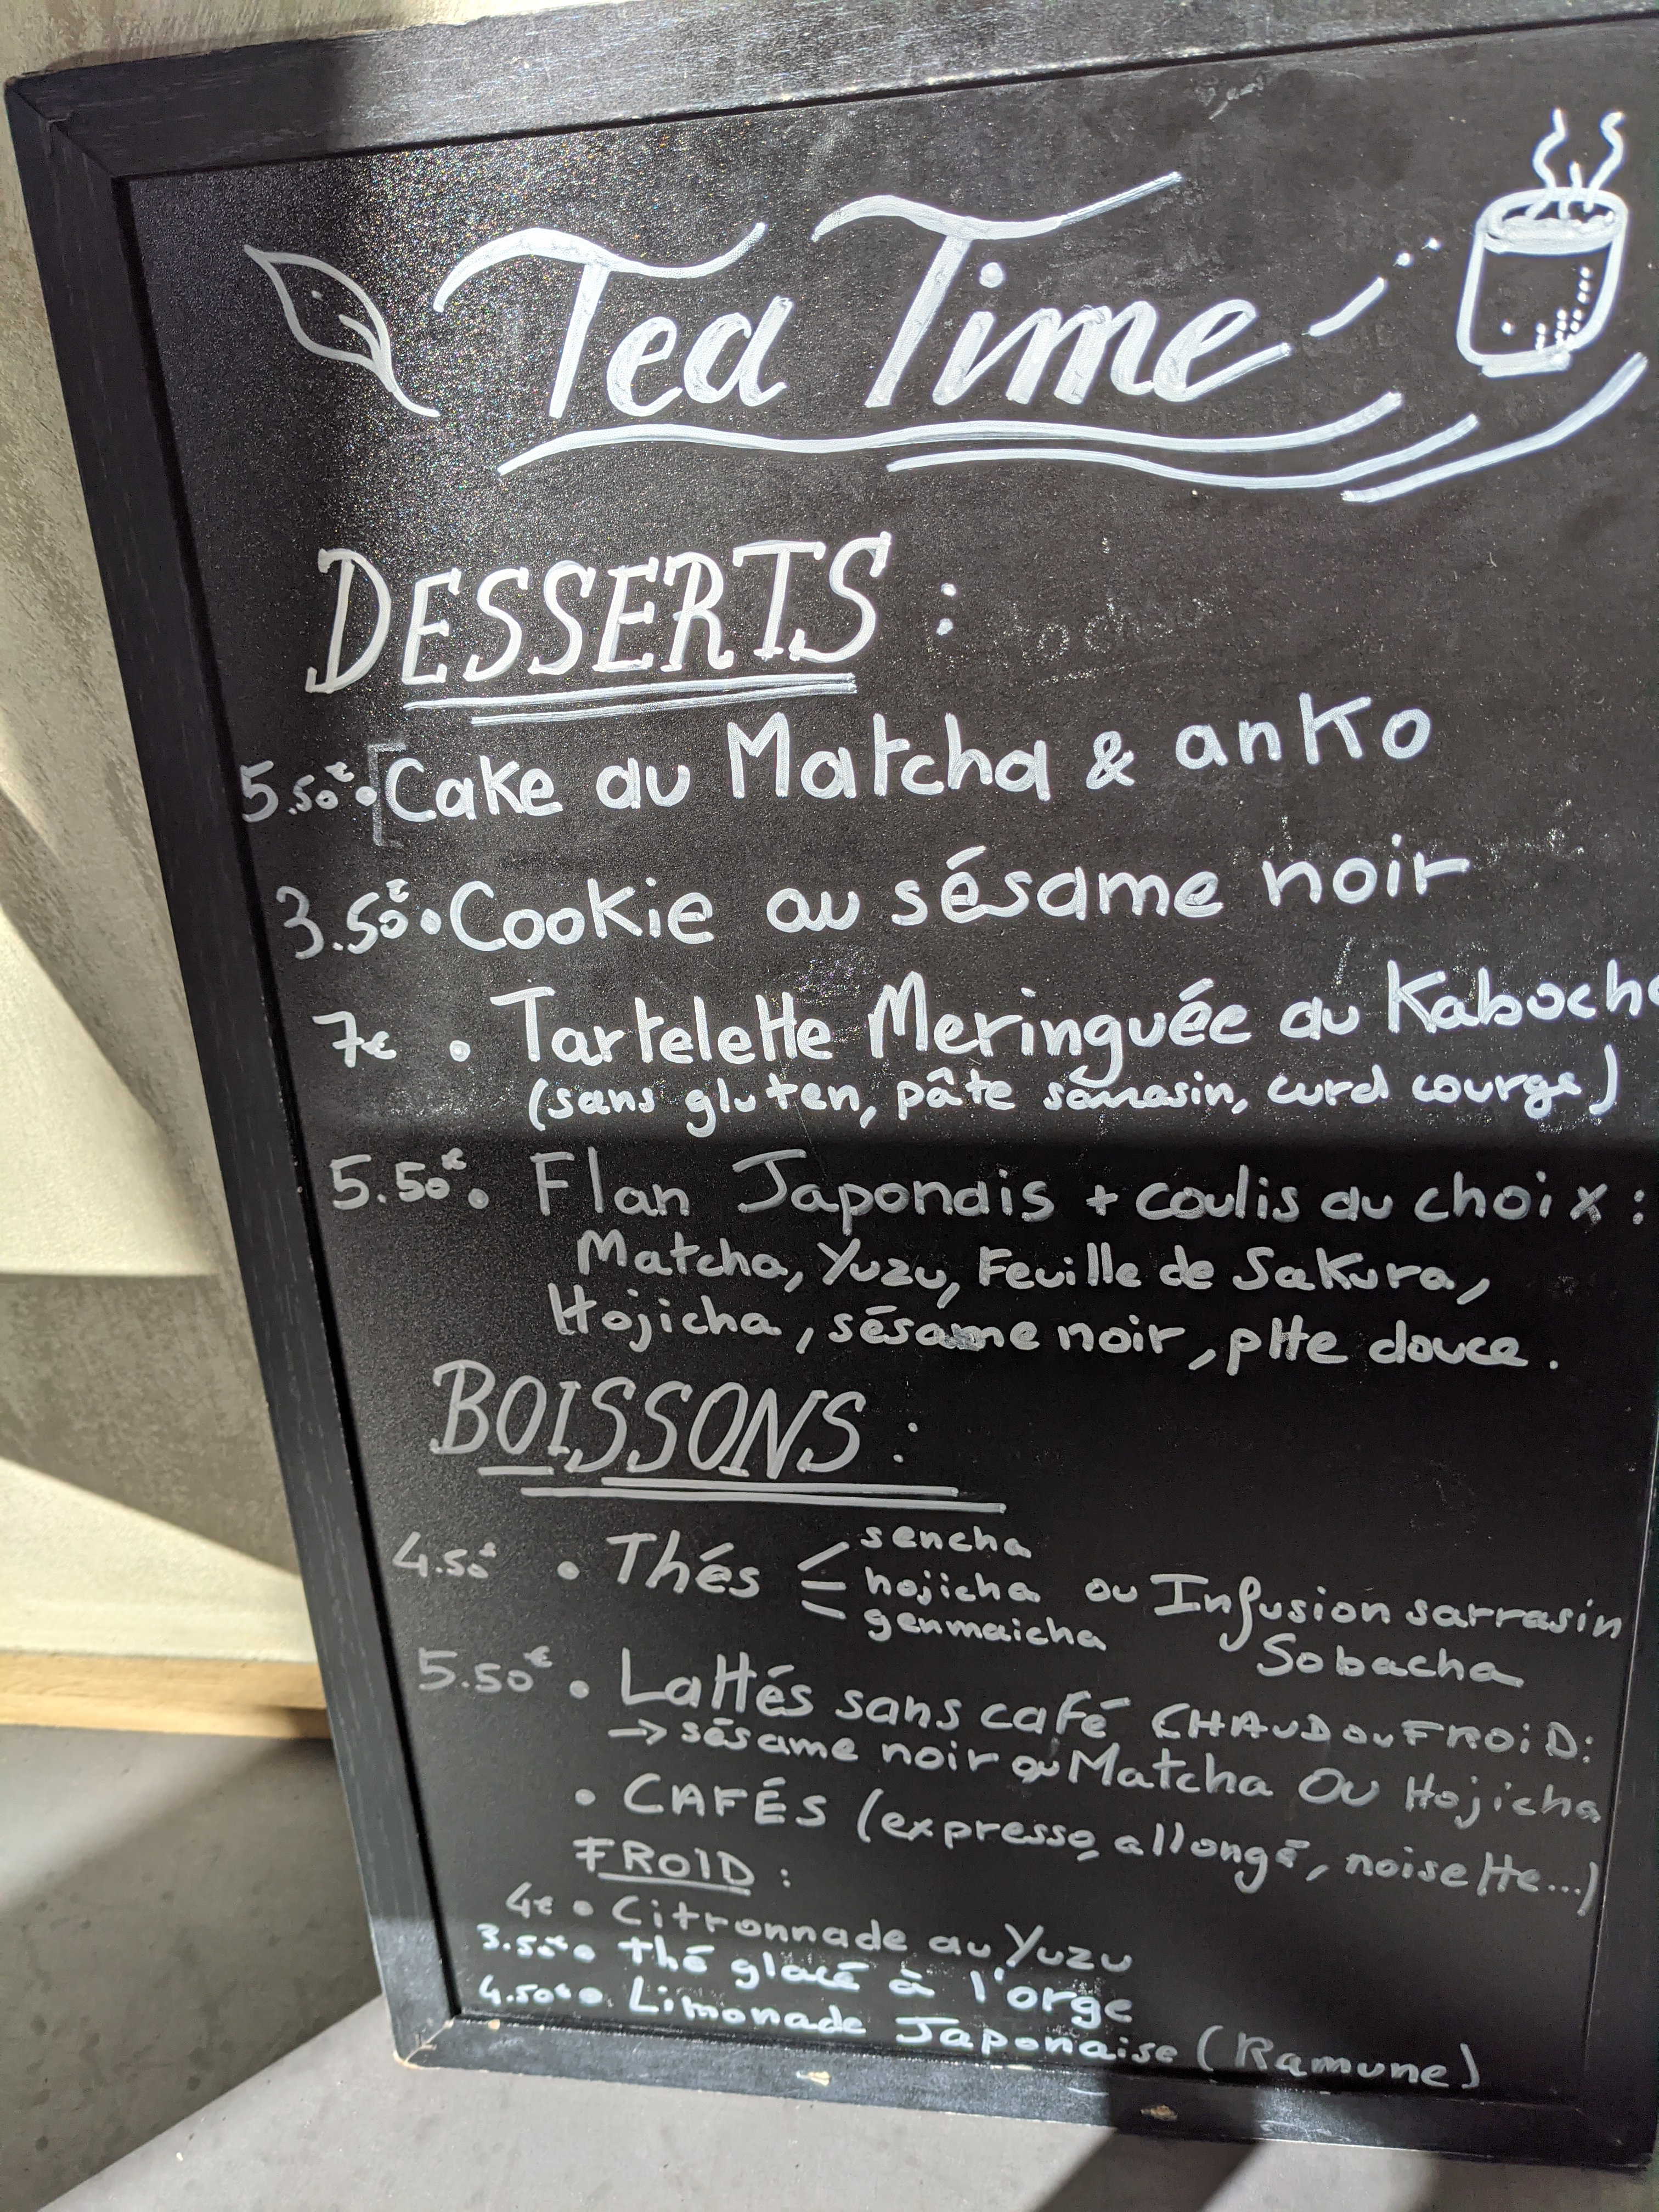 Tea Time
DESSERTS :
5.50€ • Cake au Matcha & anko
3.50€ • Cookie au sésame noir
7€ • Tartelette Meringuée au Kaboch
(sans gluten, pâte sarrasin, curd courge)
5.50€ • Flan Japonais + coulis au choix :
Matcha, Yuzu, Feuille de Sakura,
Hojicha, sésame noir, ptte douce.
BOISSONS :
4.50€ • Thés sencha
hojicha ou Infusion sarrasin
genmaicha Sobacha
5.50€ • Lattés sans café CHAUD OU FROID:
→ sésame noir ou Matcha OU Hojicha
• CAFÉS (expresso, allongé, noisette...)
FROID :
4€ • Citronnade au Yuzu
3.50€ • thé glacé à l'orge
4.50€ • Limonade Japonaise (Ramune)